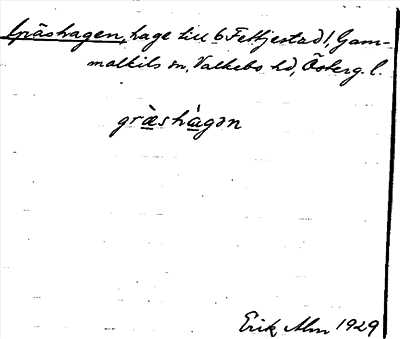 Gräshagen, hage till 6 Fettjestad 1, Gam-
malkils sn, Valkebo hd, Österg. l.
græ̀shàgən
Erik Alm 1929